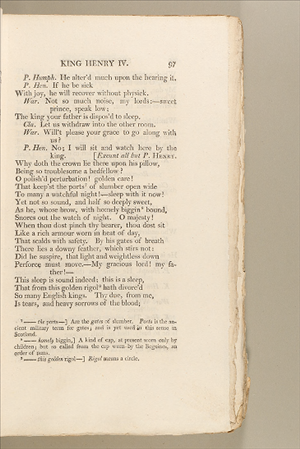 KING HENRY IV. 97
P. Humph. He alter'd much upon the hearing it.
P. Hen. If he be sick
With joy, he will recover without physick.
War. Not so much noise, my lords:—sweet
prince, speak low;
The king your father is dispos'd to sleep.
Cla. Let us withdraw into the other room.
War. Will't please your grace to go along with
us?
P. Hen. No; I will sit and watch here by the
king. [Exeunt all but P. HENRY.
Why doth the crown lie there upon his pillow,
Being so troublesome a bedfellow?
O polish'd perturbation! golden care!
That keep'st the ports⁷ of slumber open wide
To many a watchful night!—sleep with it now!
Yet not so sound, and half so deeply sweet,
As he, whose brow, with homely biggin⁸ bound,
Snores out the watch of night. O majesty!
When thou dost pinch thy bearer, thou dost sit
Like a rich armour worn in heat of day,
That scalds with safety. By his gates of breath
There lies a downy feather, which stirs not:
Did he suspire, that light and weightless down
Perforce must move.—My gracious lord! my fa-
ther!—
This sleep is sound indeed; this is a sleep,
That from this golden rigol⁹ hath divorc'd
So many English kings. Thy due, from me,
Is tears, and heavy sorrows of the blood;
⁷ —— the ports—] Are the gates of slumber. Ports is the an-
cient military term for gates; and is yet used in this sense in
Scotland.
⁸ —— homely biggin,] A kind of cap, at present worn only by
children; but so called from the cap worn by the Beguines, an
order of nuns.
⁹ —— this golden rigol—] Rigol means a circle.